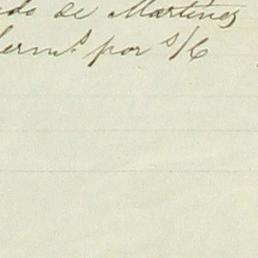 do de Martinez
por s/c